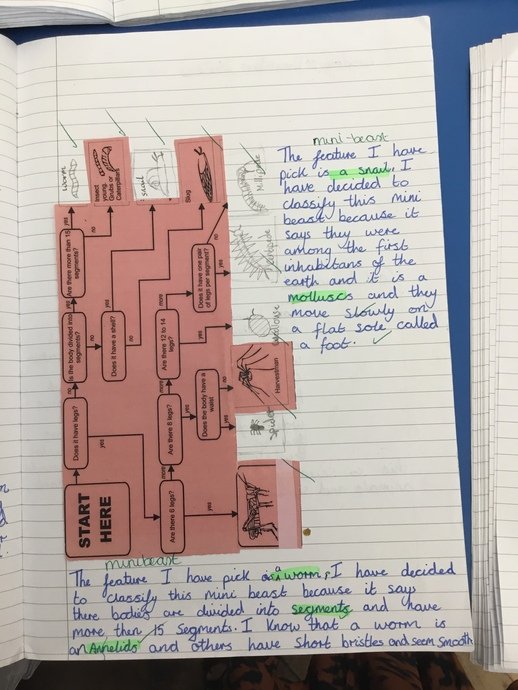 mini-beast
The feature I have
pick is a snail, I
have decided to
classify this mini
beast because it
says they were
among the first
inhabitans of the
earth and it is a
molluscs and they
move slowly on
a flat sole, called
a foot.
START
HERE
Does it have legs?
no
yes
Is the body divided into
segments?
yes
no
Are there more than 15
segments?
yes
no
worm
Insect
young,
Grubs or
Caterpillars
Does it have a shell?
yes
no
snail
Slug
Are there 6 legs?
yes
more
Are there 8 legs?
yes
more
Does the body have a
waist
yes
no
spider
Harvestman
Are there 12 to 14
legs?
yes
more
woodlouse
Does it have one pair
of legs per segment?
yes
no
Millipede
minibeast
The feature I have pick is a worm, I have decided
to classify this mini beast because it says
there bodies are divided into segments and have
more then 15 segments. I know that a worm is
an Annelids and others have short bristles and seem smooth